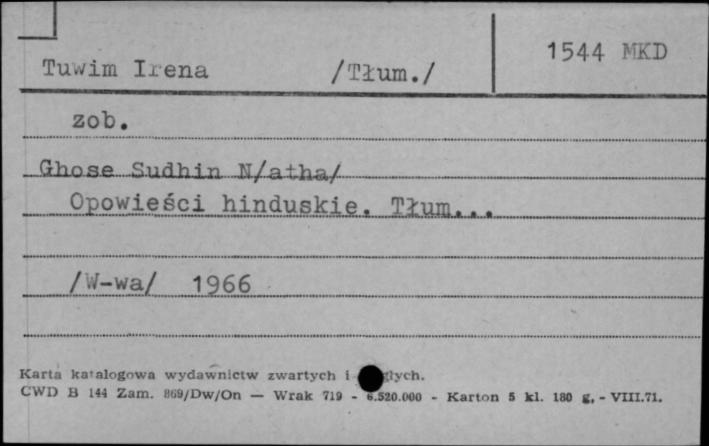 Tuwim Irena /Tłum./ 1544 MKD
zob.
Ghose Sudhin N/atha/
Opowieści hinduskie. Tłum...
/W-wa/ 1966
Karta katalogowa wydawnictw zwartych i
CWD B 144 Zam. 869/Dw/On — Wrak 719 - 6.520.000 - Karton 5 kl. 180 g, - VIII.71.